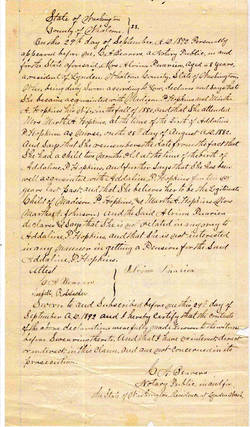 State of Washington
County of Whatcom } SS.
On this 29th day of September A.D. 1892 Personally
appeared before me, C.A. Seavens a Notary Public, in and
for the State aforesaid Mrs Alvina Pinarion, aged 48 years,
a resident of Lynden Whatcom County, State of Washington,
Who, being duly sworn according to Law, declares and says that
She became acquainted with Madison P. Hopkins and Martha
A. Hopkins his Wife, in the fall of
Mrs Martha A. Hopkins, at the time of the birth of Addaline
P. Hopkins as Nurse, on the day of August A.D. 1882.
And Says that She remembers the date from the fact that
She had a Child two months old at the time of the birth of
Addaline, P. Hopkins, and further Says that She has been
well acquainted with Addaline, P. Hopkins for ten
years last past and that She believes her to be the legitimate
Child of Madison, P. Hopkins & Martha A. Hopkins (Nee
Martha A. Johnson) And the Said Alvina Pinarion
declares & Says that She is not related in any way to
Addaline, P. Hopkins and that She is not interested
in any manner in getting a Pension for the Said
Addaline, P. Hopkins.
Attest
Alvina Pinarion
Sworn to and Subscribed before me this 29th day of
September A.D. 1892 and I hereby Certify that the contents
of the above declaration were fully made known to
before Swearing thereto. And that I have no interest direct
or indirect in this Claim, And am not concerned in its
prosecution.
C.A. Seavens
Notary Public in and for
the State of Washington, Residence at Lynden Wash